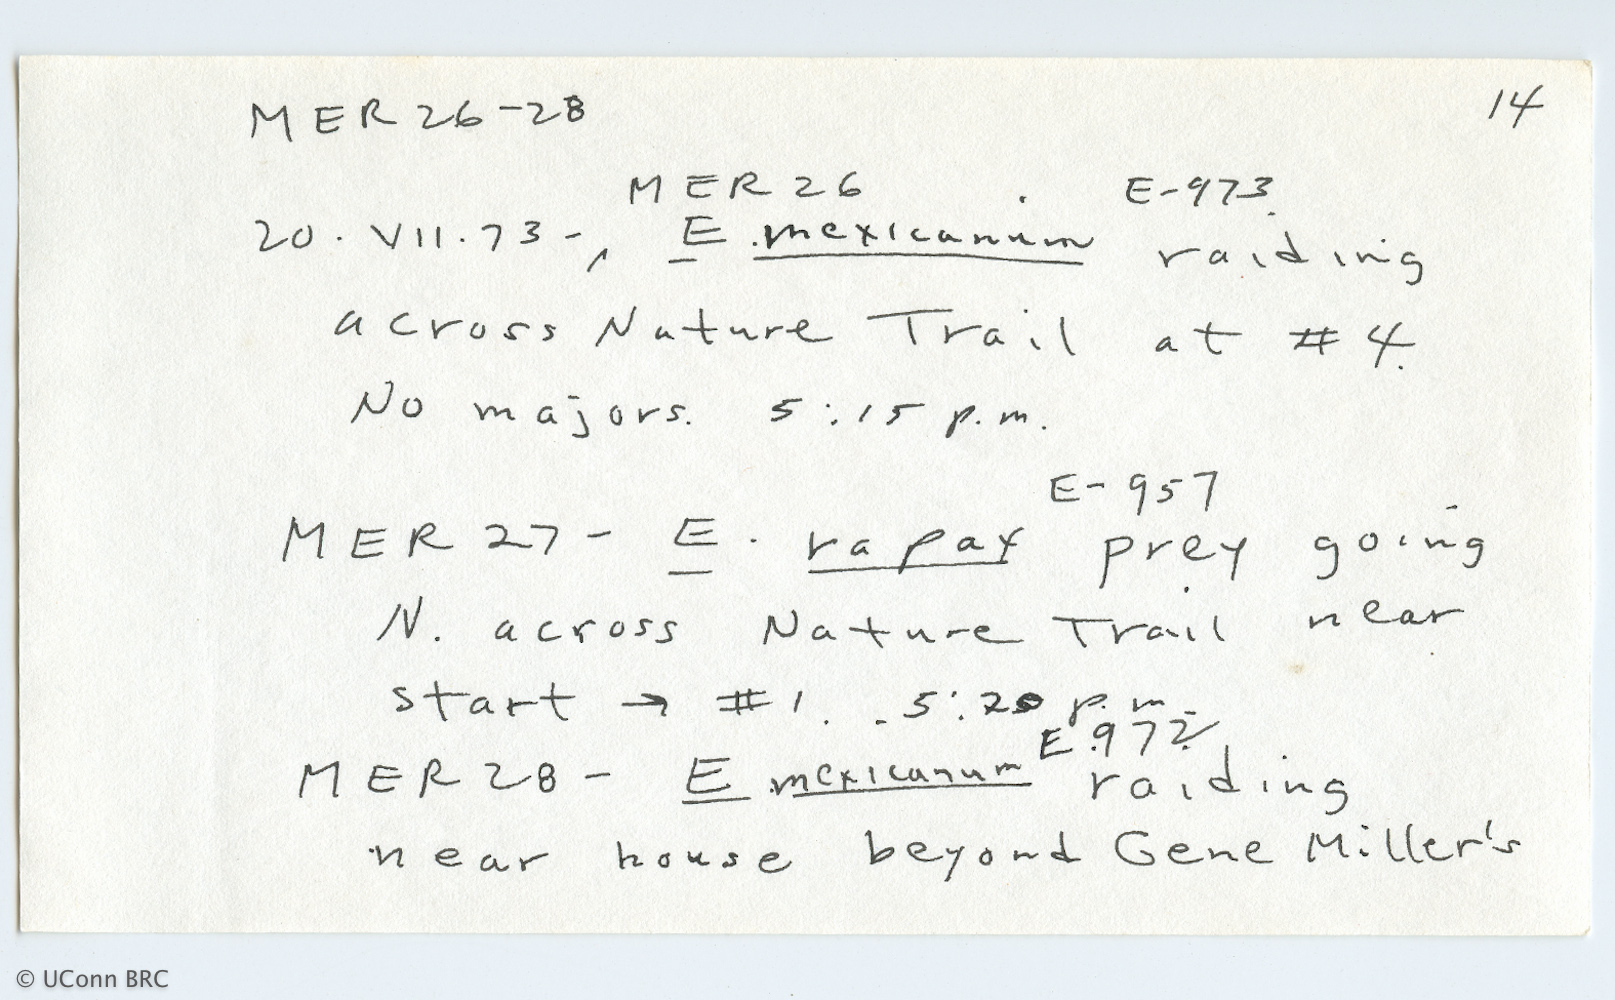 MER 26-28
14
MER 26
E-973
20.VII.73-, E. mexicanum raiding
across Nature Trail at #4.
No majors. 5:15 p.m.
E-957
MER 27- E. rapax prey going
N. across Nature Trail near
start → #1. 5:20 p.m.
E.972
MER 28- E mexicanum raiding
near house beyond Gene Miller's
© UConn BRC